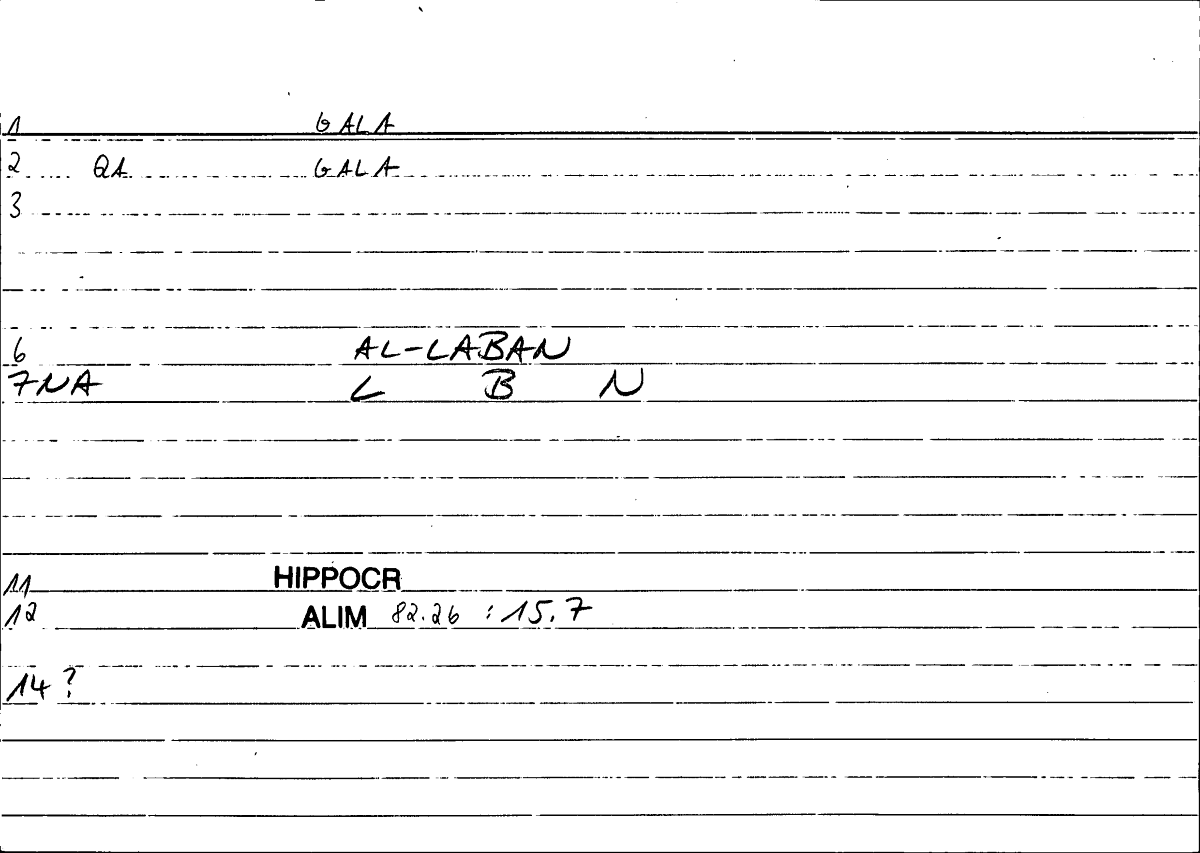 1 GALA
2 QA GALA
3
6 AL-LABAN
7NA L B N
11 HIPPOCR
12 ALIM 82.26 : 15.7
14 ?